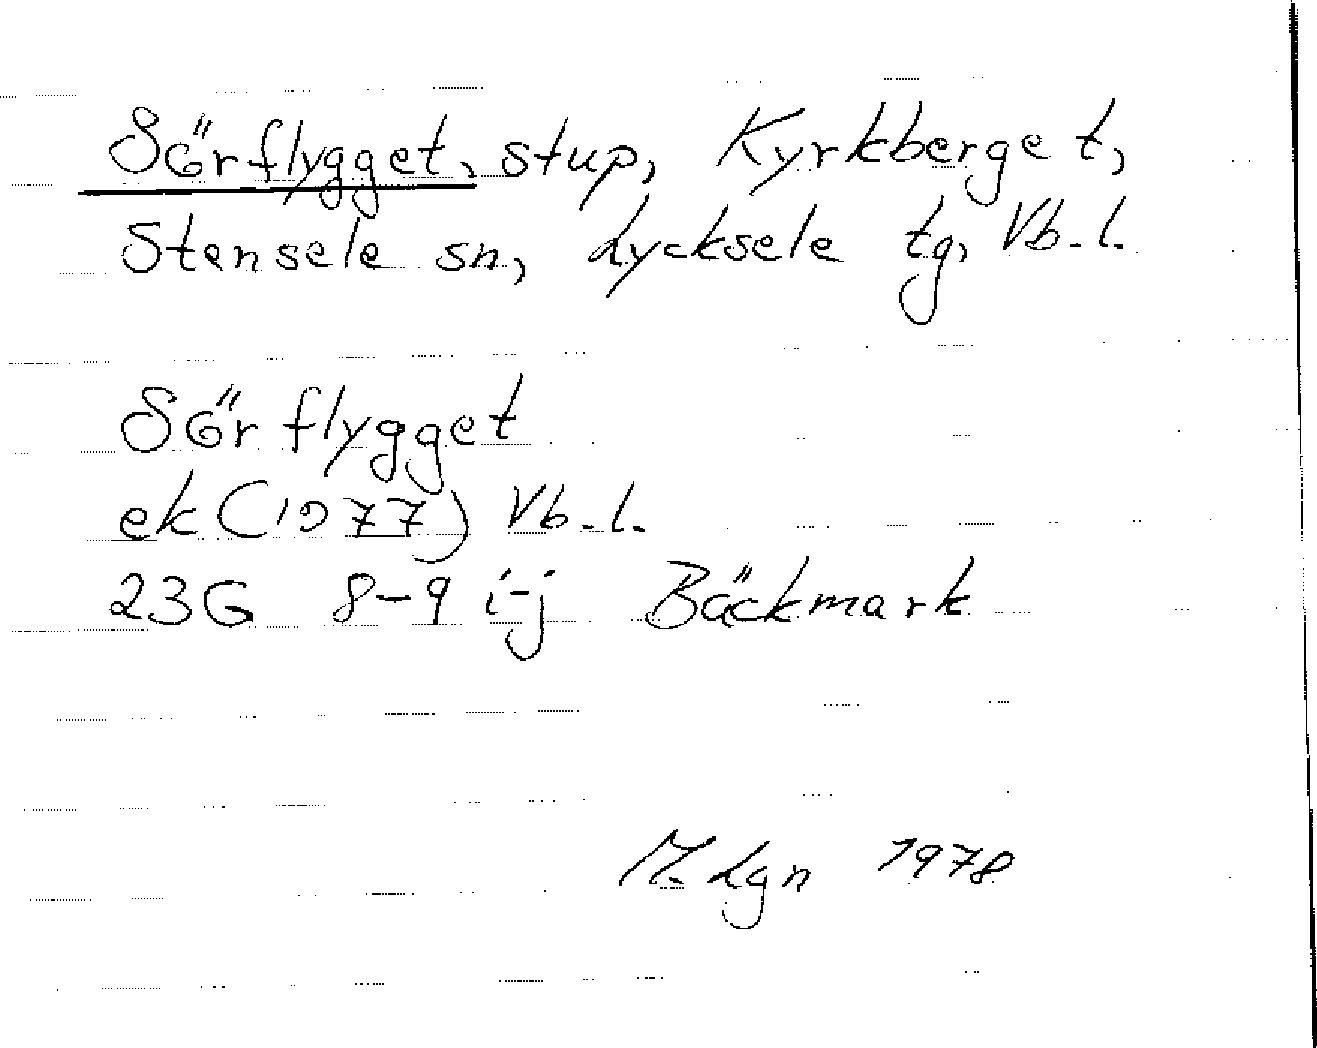 Sörflygget, stup, Kyrkberget,
Stensele sn, Lycksele tg, Vb.l.
Sörflygget
ek (1977) Vb.l.
23G 8-9 i-j Bäckmark
M. Lgn 1978